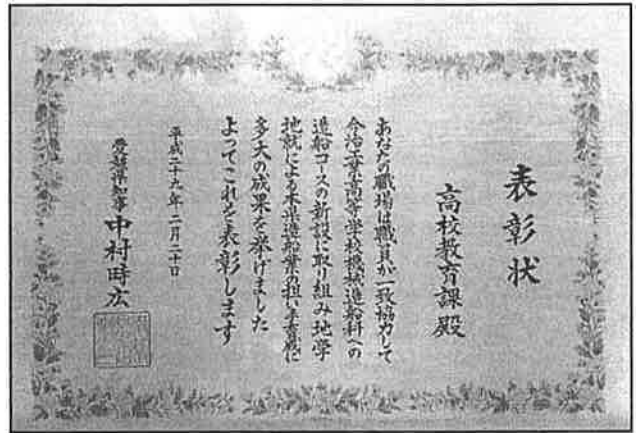 表彰状
高校教育課殿
あなたの職場は職員が一致協力して
今治工業高等学校機械造船科への
造船コースの新設に取り組み地学
地就による本県造船業の担い手育成に
多大の成果を挙げました
よってこれを表彰します
平成二十九年二月二十日
愛媛県知事 中村時広